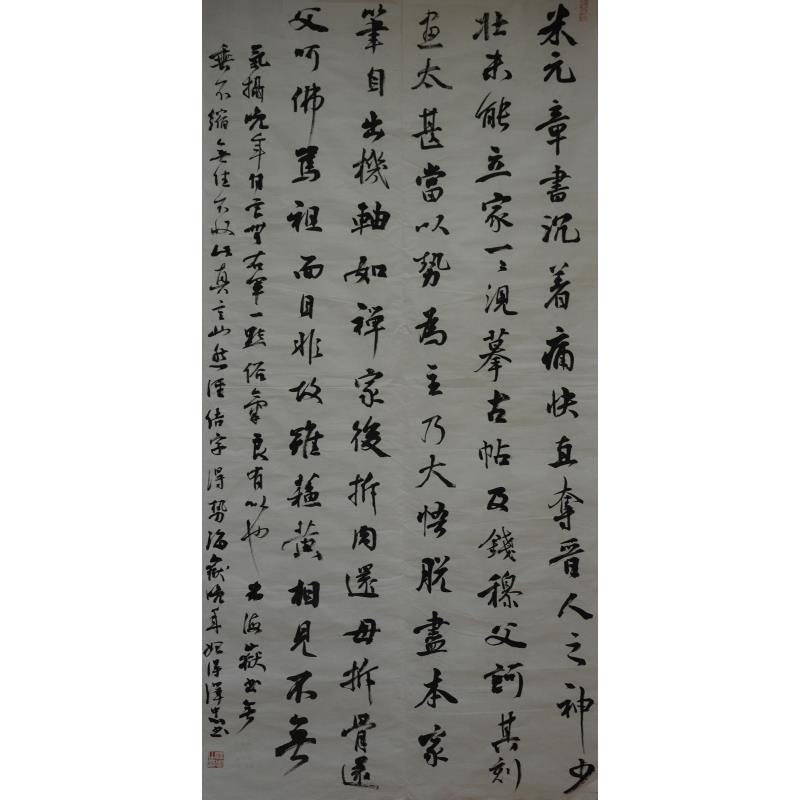 米元章書沉着痛快直奪晉人之神少
壯未能立家一〻規摹古帖及錢穆父訶其刻
畫太甚當以勢為主乃大悟脱盡本家
筆自出機軸如禅家後拆肉還母拆骨還
父呵佛罵祖面目非故雖蘇黄相見不無
氣攝晚年自言無右軍一點俗氣良有以也 米海嶽書無
垂不縮無往不收此真言 然須結字得勢海嶽晚年始得 書